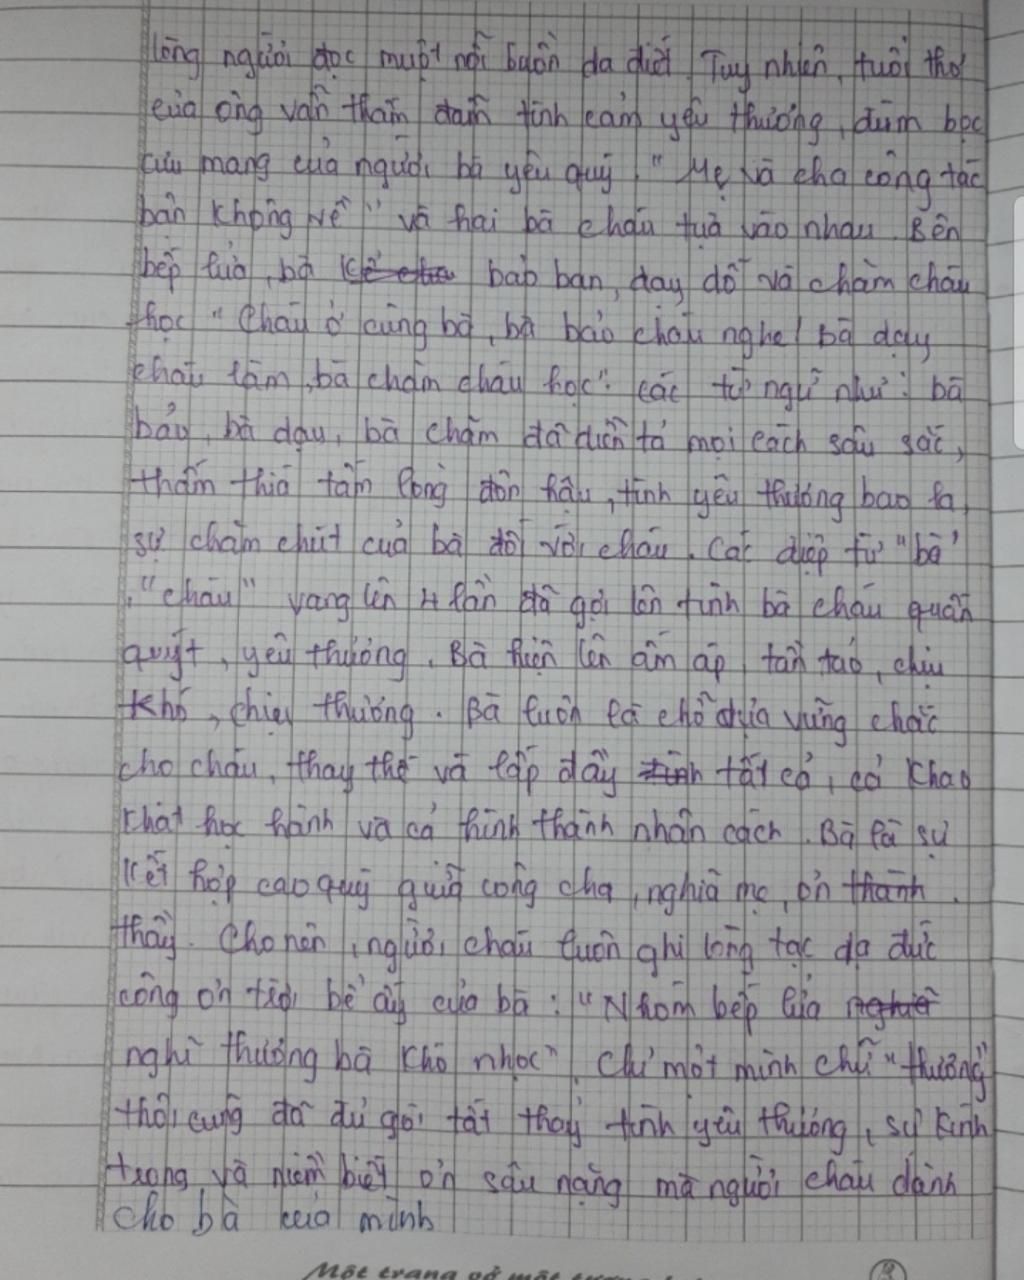 lòng người đọc muột nỗi buồn da diết. Tuy nhiên, tuổi thơ
của ông vẫn thắm đẫm tình cảm yêu thương, đùm bọc
cưu mang của người bà yêu quý. "Mẹ và cha công tác
bận không về" và hai bà cháu tựa vào nhau. Bên
bếp lửa, bà bảo ban, dạy dỗ và chăm cháu
học "Cháu ở cùng bà, bà bảo cháu nghe/ bà dạy
cháu làm, bà chăm cháu học". Các từ ngữ như: bà
bảo, bà dạy, bà chăm đã diễn tả mọi cách sâu sắc,
thấm thía tấm lòng đôn hậu, tình yêu thương bao la,
sự chăm chút của bà đối với cháu. Các điệp từ "bà"
, "cháu" vang lên 4 lần đã gợi lên tình bà cháu quấn
quýt, yêu thương. Bà hiện lên ấm áp, tần tảo, chịu
khó, chịu thương. Bà luôn là chỗ dựa vững chắc
cho cháu, thay thế và lấp đầy tất cả, cả khao
khát học hành và cả hình thành nhân cách. Bà là sự
kết hợp cao quý giữa công cha, nghĩa mẹ, ơn
thầy. Cho nên, người cháu luôn ghi lòng tạc dạ đức
công ơn trời bể ấy của bà: "Nhóm bếp lửa
nghĩ thương bà khó nhọc". Chỉ một mình chữ "thương"
thôi cũng đã đủ gói tất thảy tình yêu thương, sự kính
trọng và niềm biết ơn sâu nặng mà người cháu dành
cho bà của mình
Một trang vở một